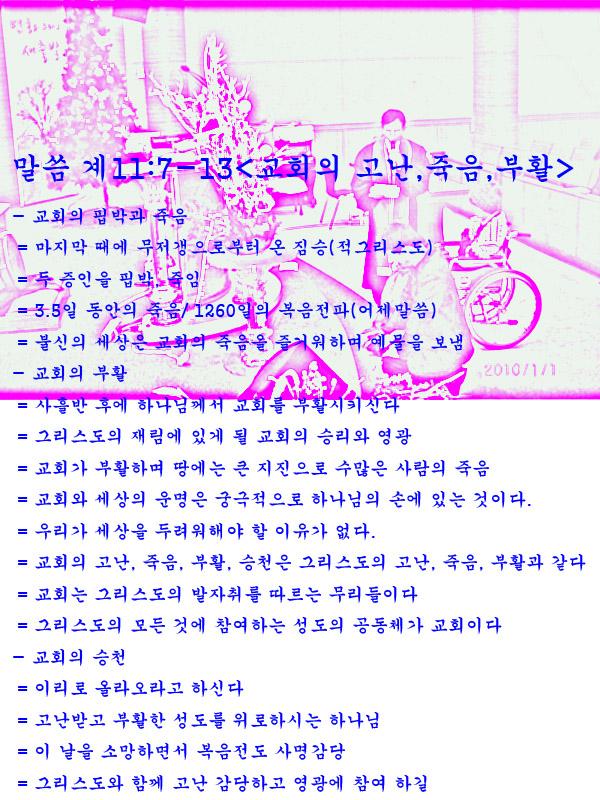 말씀 계11:7-13<교회의 고난,죽음,부활>
- 교회의 핍박과 죽음
= 마지막 때에 무저갱으로부터 온 짐승(적그리스도)
= 두 증인을 핍박, 죽임
= 3.5일 동안의 죽음/ 1260일의 복음전파(어제말씀)
= 불신의 세상은 교회의 죽음을 즐거워하며 예물을 보냄
- 교회의 부활
2010/1/1
= 사흘반 후에 하나님께서 교회를 부활시키신다
= 그리스도의 재림에 있게 될 교회의 승리와 영광
= 교회가 부활하며 땅에는 큰 지진으로 수많은 사람의 죽음
= 교회와 세상의 운명은 궁극적으로 하나님의 손에 있는 것이다.
= 우리가 세상을 두려워해야 할 이유가 없다.
= 교회의 고난, 죽음, 부활, 승천은 그리스도의 고난, 죽음, 부활과 같다
= 교회는 그리스도의 발자취를 따르는 무리들이다
= 그리스도의 모든 것에 참여하는 성도의 공동체가 교회이다
- 교회의 승천
= 이리로 올라오라고 하신다
= 고난받고 부활한 성도를 위로하시는 하나님
= 이 날을 소망하면서 복음전도 사명감당
= 그리스도와 함께 고난 감당하고 영광에 참여 하길